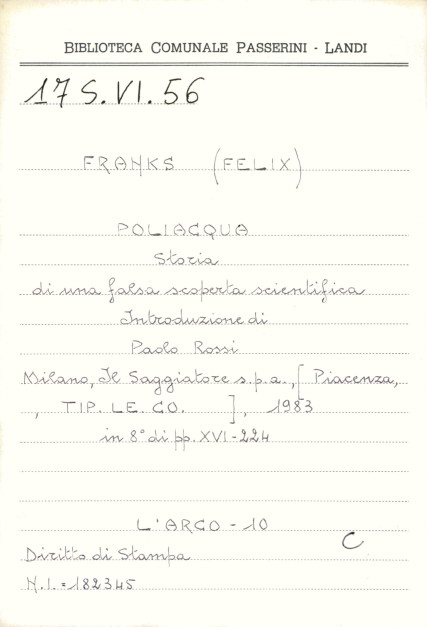 BIBLIOTECA COMUNALE PASSERINI - LANDI
17 S. VI. 56
FRANKS (FELIX)
POLIACQUA
Storia
di una falsa scoperta scientifica
Introduzione di
Paolo Rossi
Milano, Il Saggiatore s.p.a., [ Piacenza,
, TIP. LE. CO. ], 1983
in 8° di pp. XVI-224
L'ARCO - 10
C
Diritto di Stampa
N.I. = 182345